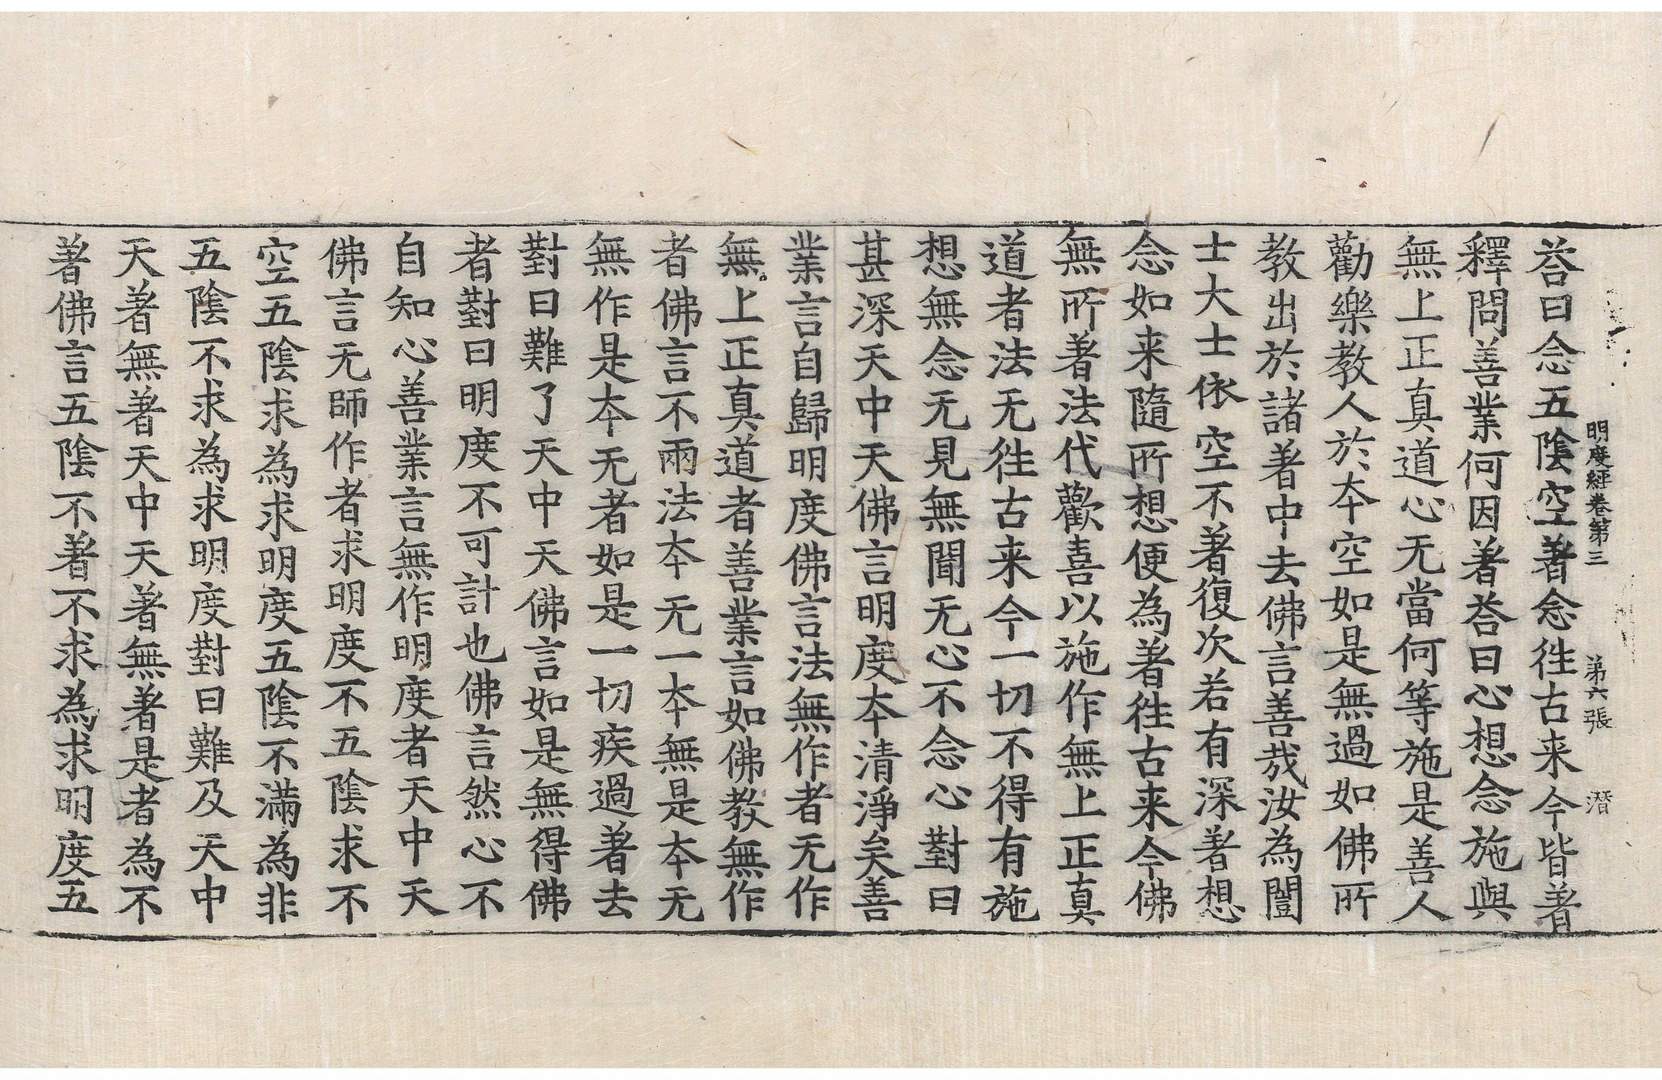 明度經卷第三 第六張 潛
荅曰念五陰空著念徃古来今皆著
釋問善業何因著荅曰心想念施與
無上正真道心无當何等施是善人
勸樂教人於夲空如是無過如佛所
教出於諸著中去佛言善哉汝為闓
士大士依空不著復次若有深著想
念如来隨所想便為著徃古来今佛
無所著法代歡喜以施作無上正真
道者法无徃古来今一切不得有施
想無念无見無聞无心不念心對曰
甚深天中天佛言明度夲清淨矣善
業言自歸明度佛言法無作者无作
無上正真道者善業言如佛教無作
者佛言不兩法夲无一夲無是夲无
無作是夲无者如是一切疾過著去
對曰難了天中天佛言如是無得佛
者對曰明度不可計也佛言然心不
自知心善業言無作明度者天中天
佛言无師作者求明度不五陰求不
空五陰求為求明度五陰不滿為非
五陰不求為求明度對曰難及天中
天著無著天中天著無著是者為不
著佛言五陰不著不求為求明度五